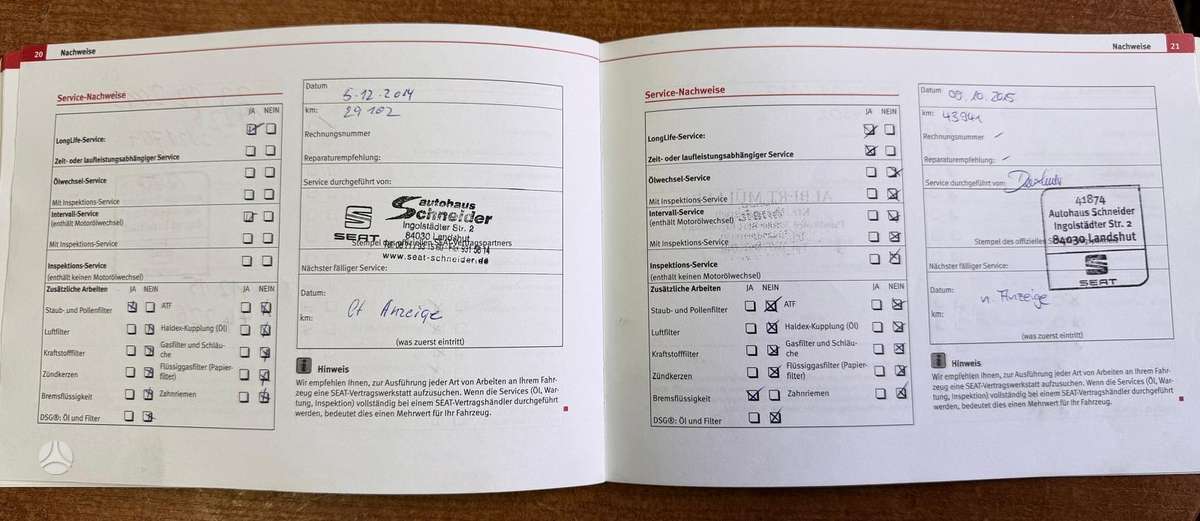 20 Nachweise
Service-Nachweise
JA NEIN
LongLife-Service:
Zeit- oder laufleistungsabhängiger Service
Ölwechsel-Service
Mit Inspektions-Service
Intervall-Service
(enthält Motorölwechsel)
Mit Inspektions-Service
Inspektions-Service
(enthält keinen Motorölwechsel)
Zusätzliche Arbeiten JA NEIN JA NEIN
Staub- und Pollenfilter ATF
Luftfilter Haldex-Kupplung (Öl)
Kraftstofffilter Gasfilter und Schläu-
che
Zündkerzen Flüssiggasfilter (Papier-
filter)
Bremsflüssigkeit Zahnriemen
DSG®: Öl und Filter
Datum 5.12.2014
km: 29102
Rechnungsnummer
Reparaturempfehlung:
Service durchgeführt von:
autohaus
Schneider
Ingolstädter Str. 2
84030 Landshut
SEAT
Stempel des offiziellen SEAT-Vertragspartners
www.seat-schneider.de
Nächster fälliger Service:
Datum:
km: Anzeige
(was zuerst eintritt)
i Hinweis
Wir empfehlen Ihnen, zur Ausführung jeder Art von Arbeiten an Ihrem Fahr-
zeug eine SEAT-Vertragswerkstatt aufzusuchen. Wenn die Services (Öl, War-
tung, Inspektion) vollständig bei einem SEAT-Vertragshändler durchgeführt
werden, bedeutet dies einen Mehrwert für Ihr Fahrzeug.
Nachweise 21
Service-Nachweise
JA NEIN
LongLife-Service:
Zeit- oder laufleistungsabhängiger Service
Ölwechsel-Service
Mit Inspektions-Service
Intervall-Service
(enthält Motorölwechsel)
Mit Inspektions-Service
Inspektions-Service
(enthält keinen Motorölwechsel)
Zusätzliche Arbeiten JA NEIN JA NEIN
Staub- und Pollenfilter ATF
Luftfilter Haldex-Kupplung (Öl)
Kraftstofffilter Gasfilter und Schläu-
che
Zündkerzen Flüssiggasfilter (Papier-
filter)
Bremsflüssigkeit Zahnriemen
DSG®: Öl und Filter
Datum 09.10.2015
km: 43941
Rechnungsnummer
Reparaturempfehlung:
Service durchgeführt von:
41874
Autohaus Schneider
Ingolstädter Str. 2
84030 Landshut
Stempel des offiziellen
SEAT
Nächster fälliger Service:
Datum: n. Anzeige
km:
(was zuerst eintritt)
i Hinweis
Wir empfehlen Ihnen, zur Ausführung jeder Art von Arbeiten an Ihrem Fahr-
zeug eine SEAT-Vertragswerkstatt aufzusuchen. Wenn die Services (Öl, War-
tung, Inspektion) vollständig bei einem SEAT-Vertragshändler durchgeführt
werden, bedeutet dies einen Mehrwert für Ihr Fahrzeug.